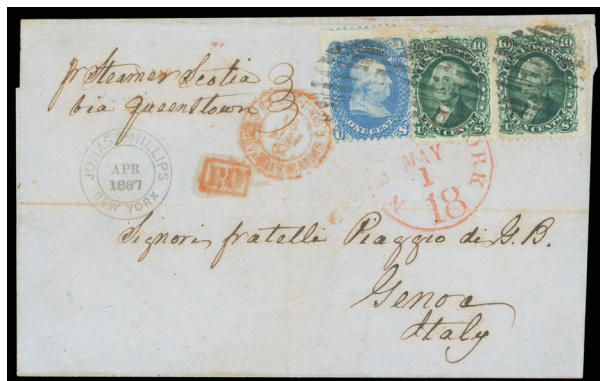 pr Steamer Scotia
via Queenstown
JONAS PHILLIPS
APR
1867
NEW YORK
P.D.
ONE CENT
10
10
MAY
1
18
YORK
Signori fratelli Piaggio di G. B.
Genoa
Italy